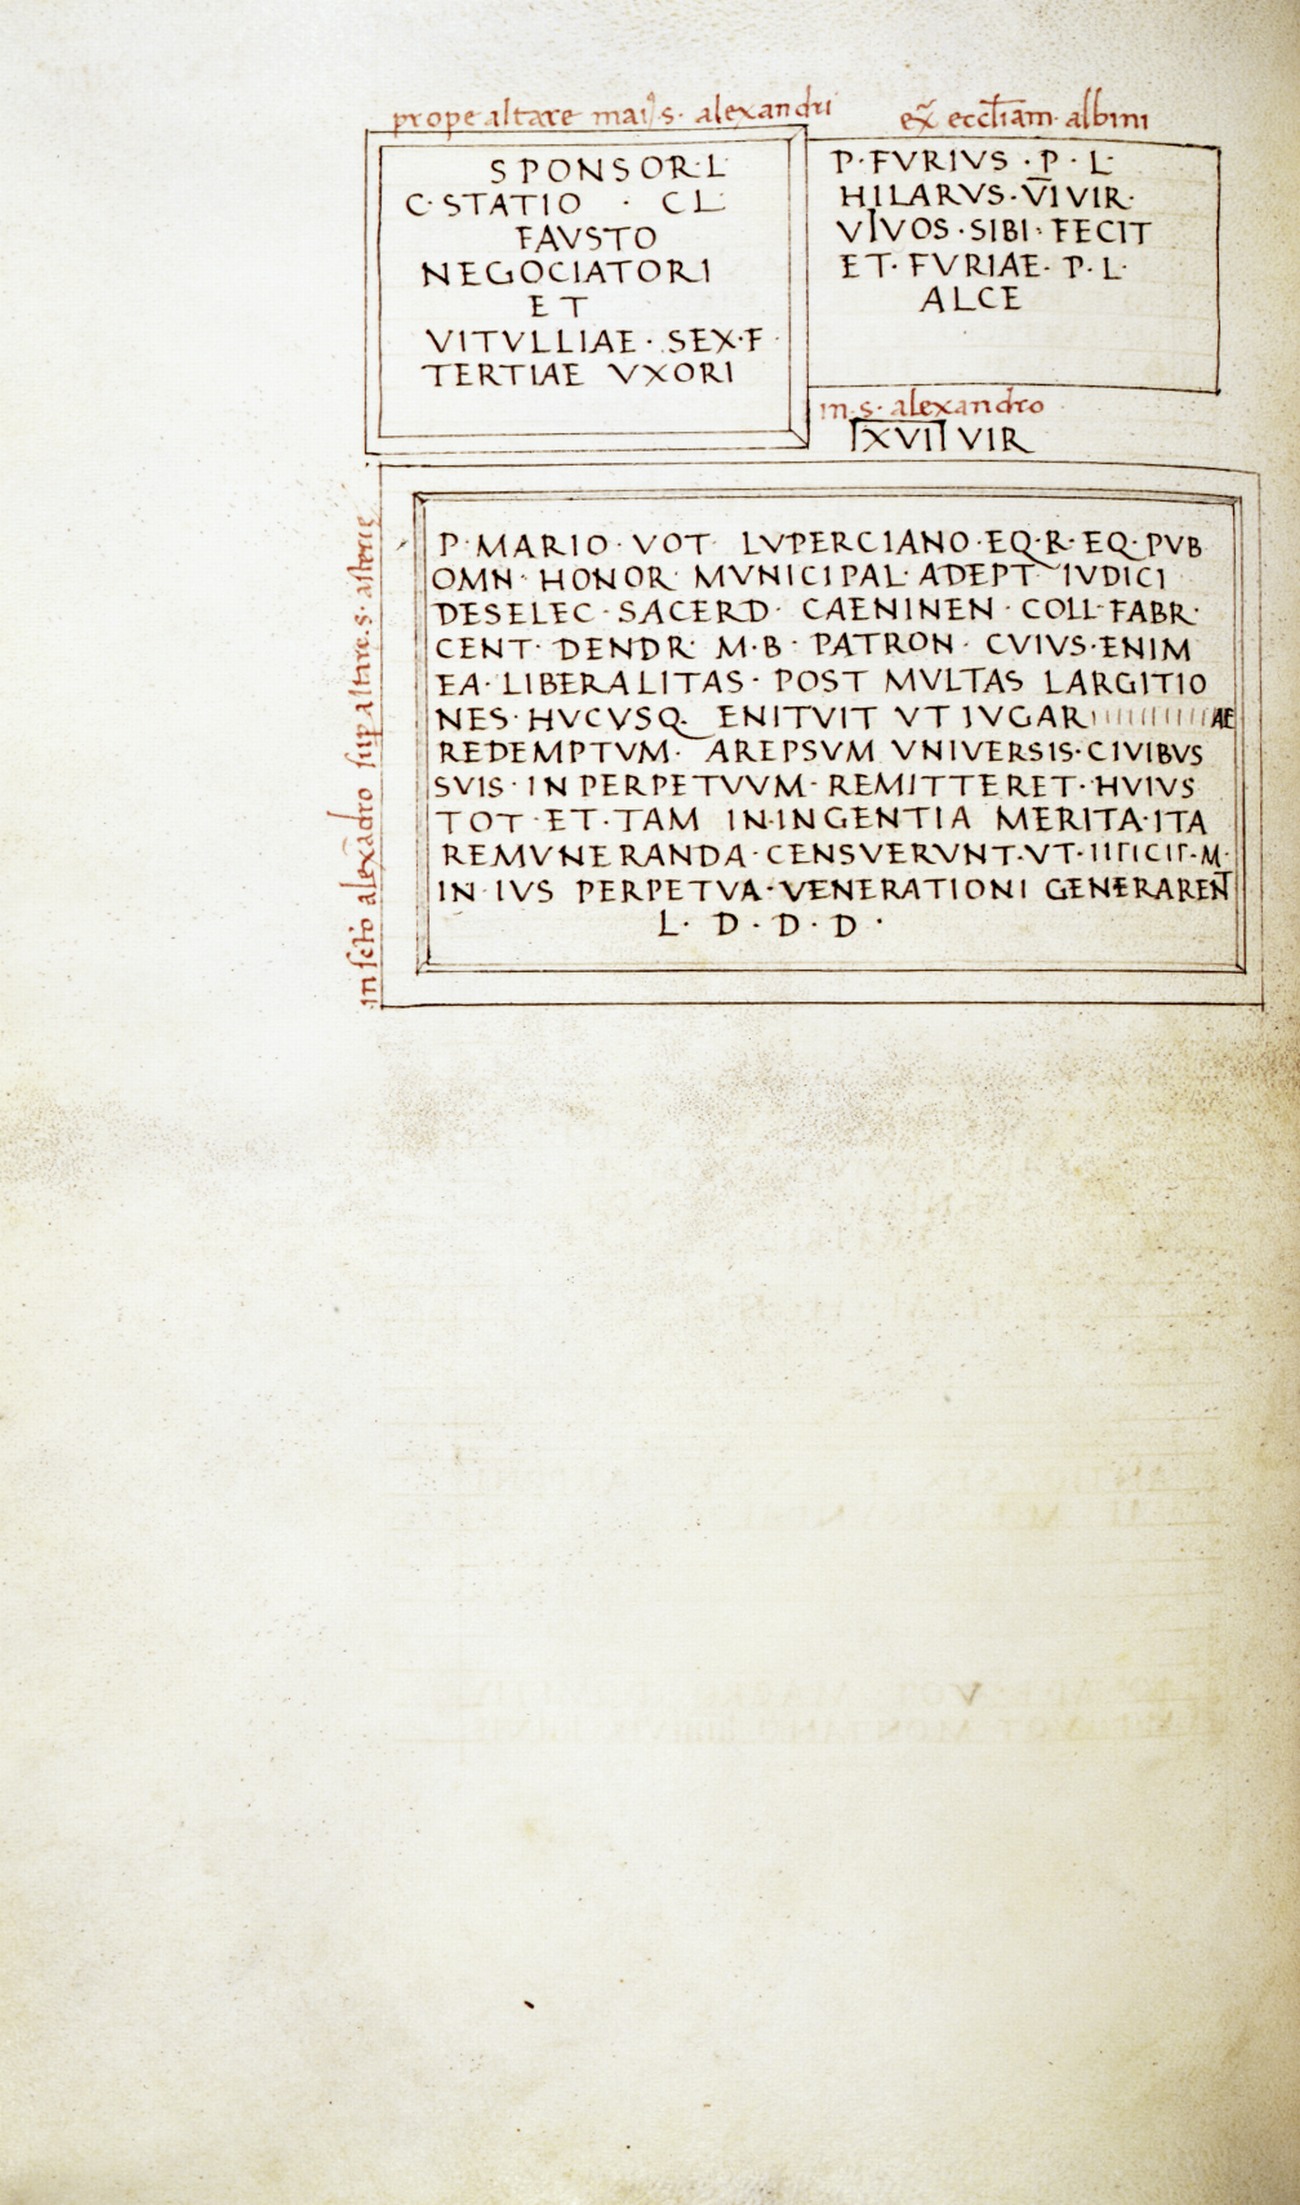 prope altare mai9 s. alexandri
SPONSOR·L·
C·STATIO · CL·
FAVSTO
NEGOCIATORI
ET
VITVLLIAE · SEX·F·
TERTIAE VXORI
ex̃ eccl̄iam· albini
P·FVRIVS·P·L·
HILARVS·V̅I̅VIR·
VIVOS·SIBI·FECIT
ET·FVRIAE·P·L·
ALCE
in·s·alexandro
VIR
in sc̄to alexādro sup altare·s·asterie
P·MARIO·VOT· LVPERCIANO·EQ·R·EQ·PVB
OMN·HONOR·MVNICIPAL·ADEPT·IVDICI
DESELEC·SACERD· CAENINEN·COLL·FABR·
CENT·DENDR·M·B·PATRON·CVIVS·ENIM
EA·LIBERALITAS·POST MVLTAS LARGITIO
NES·HVCVSQ· ENITVIT VT IVGAR AE
REDEMPTVM· AREPSVM VNIVERSIS·CIVIBVS
SVIS·IN PERPETVVM·REMITTERET·HVIVS
TOT·ET·TAM IN·INGENTIA MERITA·ITA
REMVNERANDA·CENSVERVNT·VT· M·
IN·IVS PERPETVA·VENERATIONI GENERARENT
L·D·D·D·